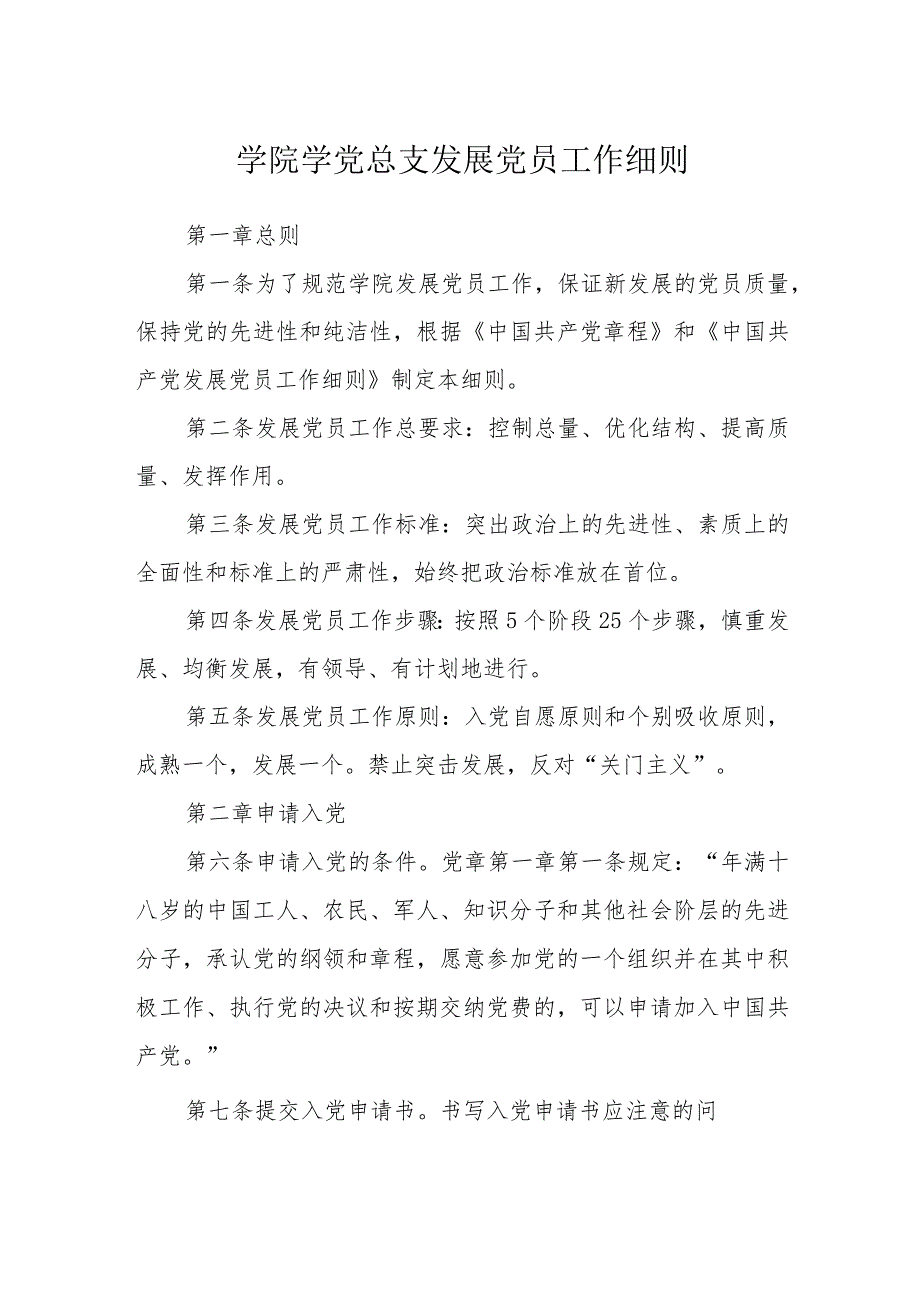 学院学党总支发展党员工作细则
第一章总则
第一条为了规范学院发展党员工作，保证新发展的党员质量，
保持党的先进性和纯洁性，根据《中国共产党章程》和《中国共
产党发展党员工作细则》制定本细则。
第二条发展党员工作总要求：控制总量、优化结构、提高质
量、发挥作用。
第三条发展党员工作标准：突出政治上的先进性、素质上的
全面性和标准上的严肃性，始终把政治标准放在首位。
第四条发展党员工作步骤：按照5个阶段25个步骤，慎重发
展、均衡发展，有领导、有计划地进行。
第五条发展党员工作原则：入党自愿原则和个别吸收原则，
成熟一个，发展一个。禁止突击发展，反对“关门主义”。
第二章申请入党
第六条申请入党的条件。党章第一章第一条规定：“年满十
八岁的中国工人、农民、军人、知识分子和其他社会阶层的先进
分子，承认党的纲领和章程，愿意参加党的一个组织并在其中积
极工作、执行党的决议和按期交纳党费的，可以申请加入中国共
产党。”
第七条提交入党申请书。书写入党申请书应注意的问